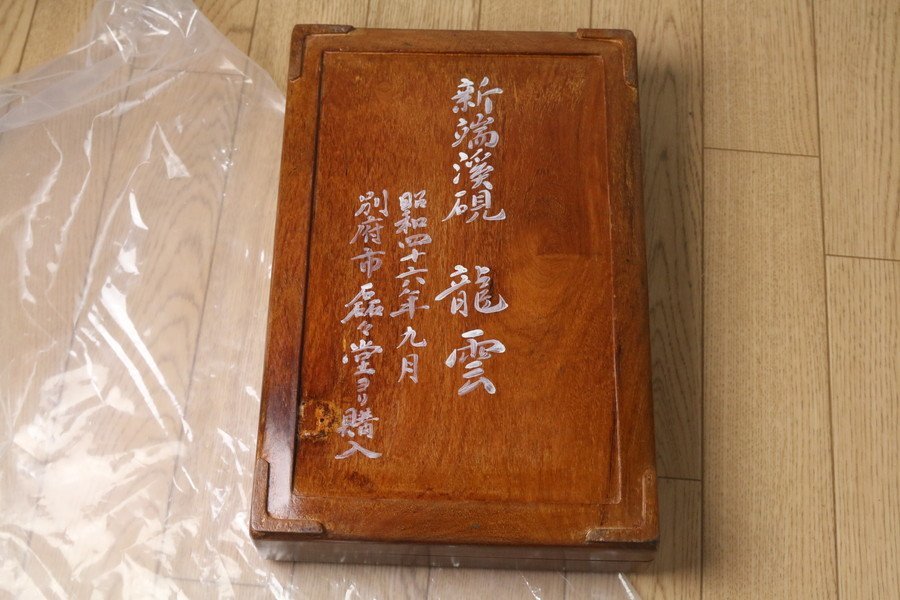 新端溪硯 龍雲
昭和四十六年九月
別府市 磊々堂ヨリ購入